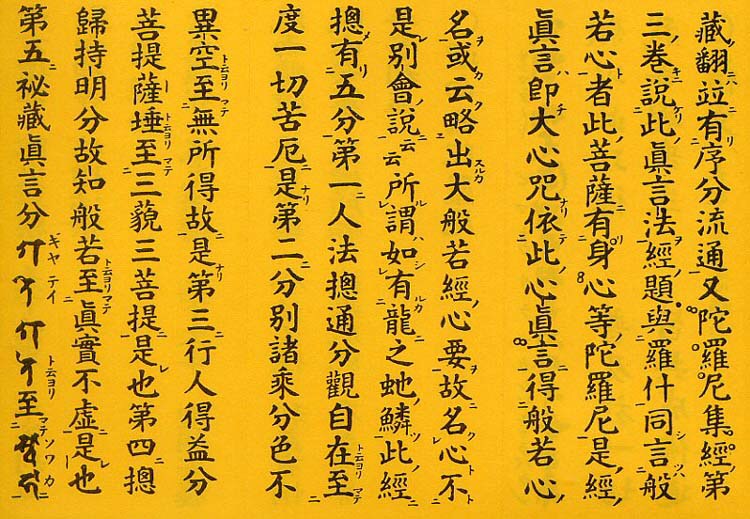 藏翻竝有序分流通又陀羅尼集經第
三卷說此眞言法經題與羅什同言般
若心者此菩薩有身心等陀羅尼是經
眞言卽大心咒依此心眞言得般若心
名或云略出大般若經心要故名心不
是別會說云云所謂如有龍之虵鱗此經
摠有五分第一人法摠通分觀自在至
度一切苦厄是第二分別諸乘分色不
異空至無所得故是第三行人得益分
菩提薩埵至三藐三菩提是也第四摠
歸持明分故知般若至眞實不虛是也
第五祕藏眞言分𑖐𑖝𑖸𑖐𑖝𑖸至𑖭𑖿𑖪𑖯𑖮𑖯